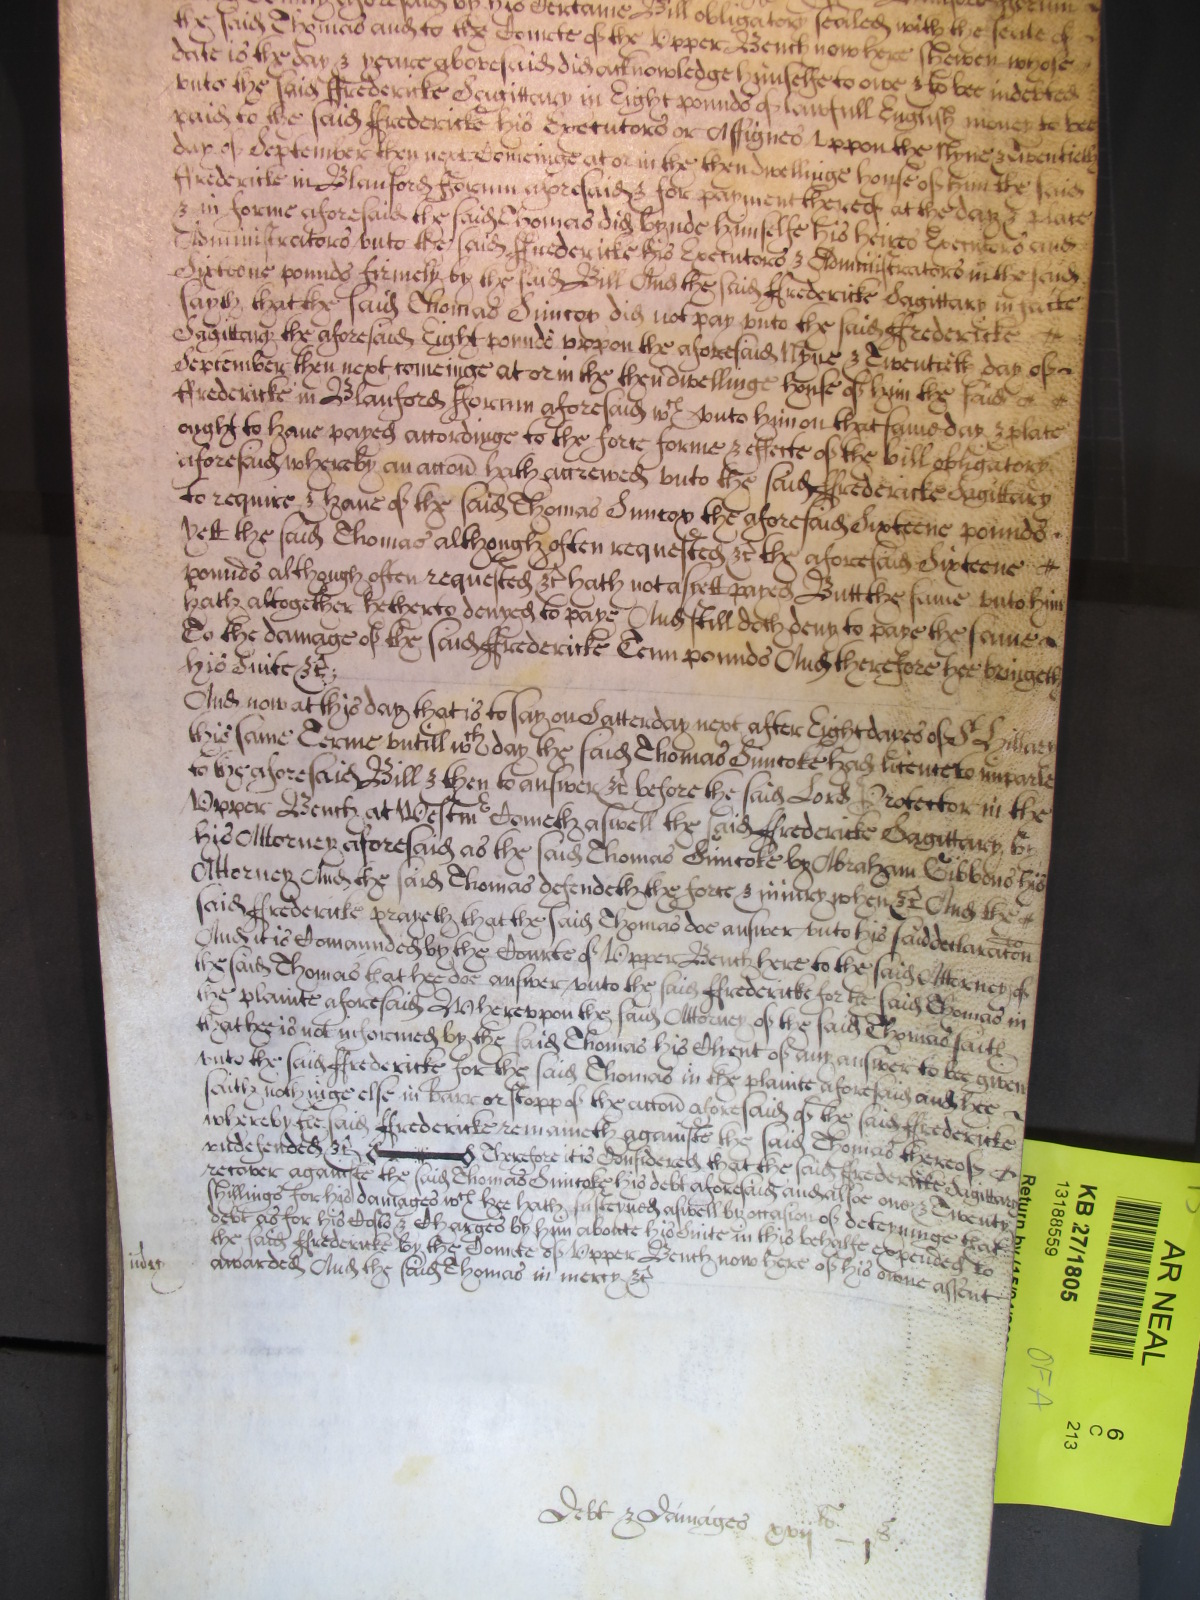 the said Thomas and to the Courte of the Upper Bench now here shewen whose
date is the day & yeare abovesaid did acknowledge himselfe to owe & to bee indebted
unto the said ffredericke Sagittary in Eight pounds of lawfull English money to bee
paid to the said ffredericke his Executors or Assignes uppon the Nyne & twentieth
day of September then next Comeinge at or in the then dwellinge house of him the said
ffredericke in Blanford fforum aforesaid & for payment thereof at the day & place
& in forme aforesaid the said Thomas did bynde himselfe his heires Executors and
Administrators unto the said ffredericke his Executors & Administrators in the said
Sixteene pounds firmely by the said Bill And the said ffredericke Sagittary in facte
sayth that the said Thomas Guntoy did not pay unto the said ffredericke
Sagittary the aforesaid Eight pounds uppon the aforesaid Nyne & Twentieth day of
September then next comeinge at or in the then dwellinge house of him the said
ffredericke in Blanford fforum aforesaid wch unto him on that same day & place
ought to have payed accordinge to the force forme & effecte of the bill obligatory
aforesaid whereby an accon hath accrewed unto the said ffredericke Sagittary
to require & have of the said Thomas Guntoy the aforesaid Sixteene pounds
Yett the said Thomas although often requested &c the aforesaid Sixteene
pounds although often requested &c hath not as yett payed Butt the same unto him
hath altogether hetherto denyed to paye And still doth deny to paye the same
To the damage of the said ffredericke Tenn pounds And therefore hee bringeth
his Suite &c
And now at this day that is to say on Satterday next after Eight dayes of St Hillary
this same Terme untill wch day the said Thomas Guntoke had licence to imparle
to the aforesaid Bill & then to answer &c before the said Lord Protector in the
Upper Bench at Westmr Cometh aswell the said ffredericke Sagittary by
his Attorney aforesaid as the said Thomas Guntoke by Abraham Gibbons his
Attorney And the said Thomas defendeth the force & injury when &c And the
said ffredericke prayeth that the said Thomas doe answer unto his said declaracon
And it is Comaunded by the Courte of Upper Bench here to the said Attorney of
the said Thomas that hee doe answer unto the said ffredericke for the said Thomas in
the plainte aforesaid Whereuppon the said Attorney of the said Thomas saith
that hee is not informed by the said Thomas his Clyent of any answer to bee given
unto the said ffredericke for the said Thomas in the plainte aforesaid and hee
saith nothinge else in barr or stopp of the accon aforesaid of the said ffredericke
whereby the said ffredericke remaineth againste the said Thomas thereof
undefended &c Therefore it is Considered that the said ffredericke Sagittary
recover againste the said Thomas Guntoke his debt aforesaid and alsoe one & Twenty
shillings for his damages wch hee hath susteyned aswell by occasion of deteyninge that
debt as for his Costs & Charges by him aboute his Suite in this behalfe expended to
the said ffredericke by the Courte of Upper Bench now here of his owne assent
awarded And the said Thomas in mercy &c
judgt
Debt & Damages xvii li - 1 s
AR NEAL
KB 27/1805
13188559
6
C
213
OFA